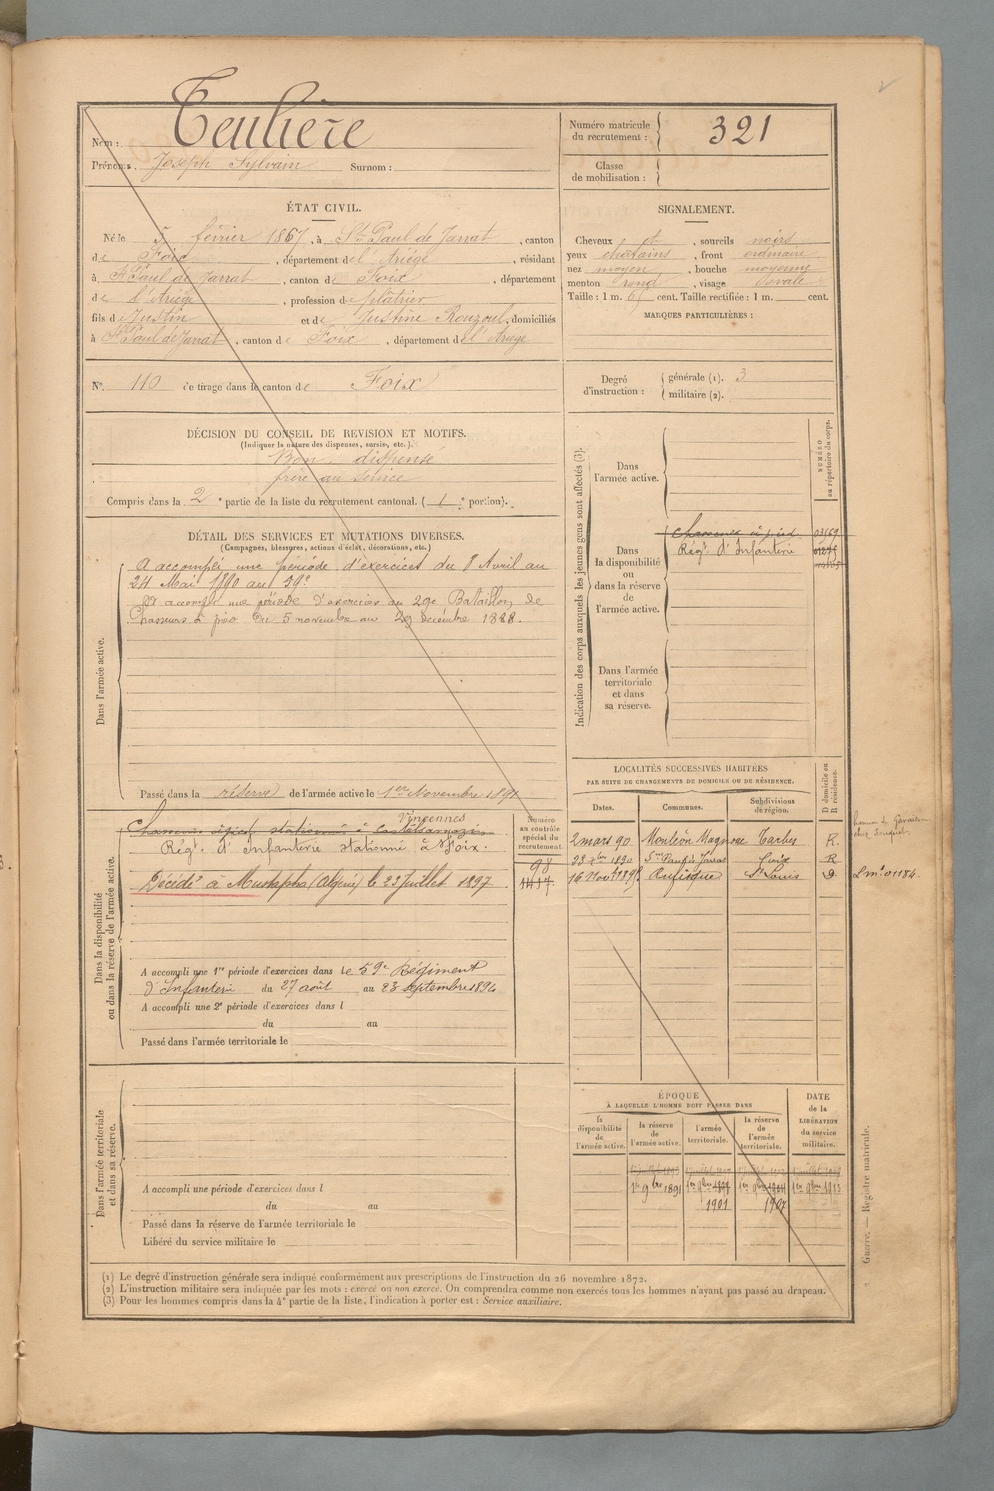 Nom : Teulière
Prénoms. Joseph Sylvain Surnom :
Numéro matricule du recrutement : 321
Classe de mobilisation :
ÉTAT CIVIL.
Né le 5 février 1867, à St Paul de Jarrat, canton
de Foix, département de l'Ariège, résidant
à St Paul de Jarrat, canton de Foix, département
de l'Ariège, profession de plâtrier
fils de Justin et de Justine Rouzoul, domiciliés
à St Paul de Jarrat, canton de Foix, département de l'Ariège
SIGNALEMENT.
Cheveux et, sourcils noirs
yeux châtains, front ordinaire
nez moyen, bouche moyenne
menton rond, visage ovale
Taille : 1 m. 61 cent. Taille rectifiée : 1 m. cent.
MARQUES PARTICULIÈRES :
N° 110 de tirage dans le canton de Foix
Degré d'instruction : générale (1). 3
militaire (2).
DÉCISION DU CONSEIL DE REVISION ET MOTIFS.
(Indiquer la nature des dispenses, sursis, etc.).
Bon. dispensé
frère au service
Compris dans la 2e partie de la liste du recrutement cantonal. (1e portion).
DÉTAIL DES SERVICES ET MUTATIONS DIVERSES.
(Campagnes, blessures, actions d'éclat, décorations, etc.)
Dans l'armée active.
A accompli une période d'exercices du 8 Avril au
24 Mai 1890 au 59e
A accompli une période d'exercices au 29e Bataillon de
Chasseurs à pied du 5 novembre au 29 décembre 1888.
Passé dans la réserve de l'armée active le 1er Novembre 1891
Indication des corps auxquels les jeunes gens sont affectés (3).
NUMÉRO au répertoire du corps.
Dans l'armée active.
Dans la disponibilité ou dans la réserve de l'armée active.
Chasseurs à pied 03669
Régt d'Infanterie
Dans l'armée territoriale et dans sa réserve.
LOCALITÉS SUCCESSIVES HABITÉES
PAR SUITE DE CHANGEMENTS DE DOMICILE OU DE RÉSIDENCE.
Dates. Communes. Subdivisions de région. D domicile ou R résidence.
2 mars 90 Monléon Magnoac Tarbes R.
23 xbre 1890 St Paul de Jarrat Foix R
16 Novre Rufisque St Louis D
Dans la disponibilité ou dans la réserve de l'armée active.
Numéro au contrôle spécial du recrutement
Vincennes
Chasseurs à pied stationnés à
Régt d'infanterie stationné à Foix.
98
1417
Décédé à Mustapha (Algérie) le 22 Juillet 1897
A accompli une 1re période d'exercices dans le 59e Régiment
d'Infanterie du 27 août au 23 Septembre 1894
A accompli une 2e période d'exercices dans l
du au
Passé dans l'armée territoriale le
Dans l'armée territoriale et dans sa réserve.
A accompli une période d'exercices dans l
du au
Passé dans la réserve de l'armée territoriale le
Libéré du service militaire le
ÉPOQUE
À LAQUELLE L'HOMME DOIT PASSER DANS
la disponibilité de l'armée active.
la réserve de l'armée active.
l'armée territoriale.
la réserve de l'armée territoriale.
DATE de la LIBÉRATION du service militaire.
1er 9bre 1891 1er 9bre 1er 9bre 1er 9bre 1913
1901 1907
(1) Le degré d'instruction générale sera indiqué conformément aux prescriptions de l'instruction du 26 novembre 1872.
(2) L'instruction militaire sera indiquée par les mots : exercé ou non exercé. On comprendra comme non exercés tous les hommes n'ayant pas passé au drapeau.
(3) Pour les hommes compris dans la 4e partie de la liste, l'indication à porter est : Service auxiliaire.
Guerre. — Registre matricule.